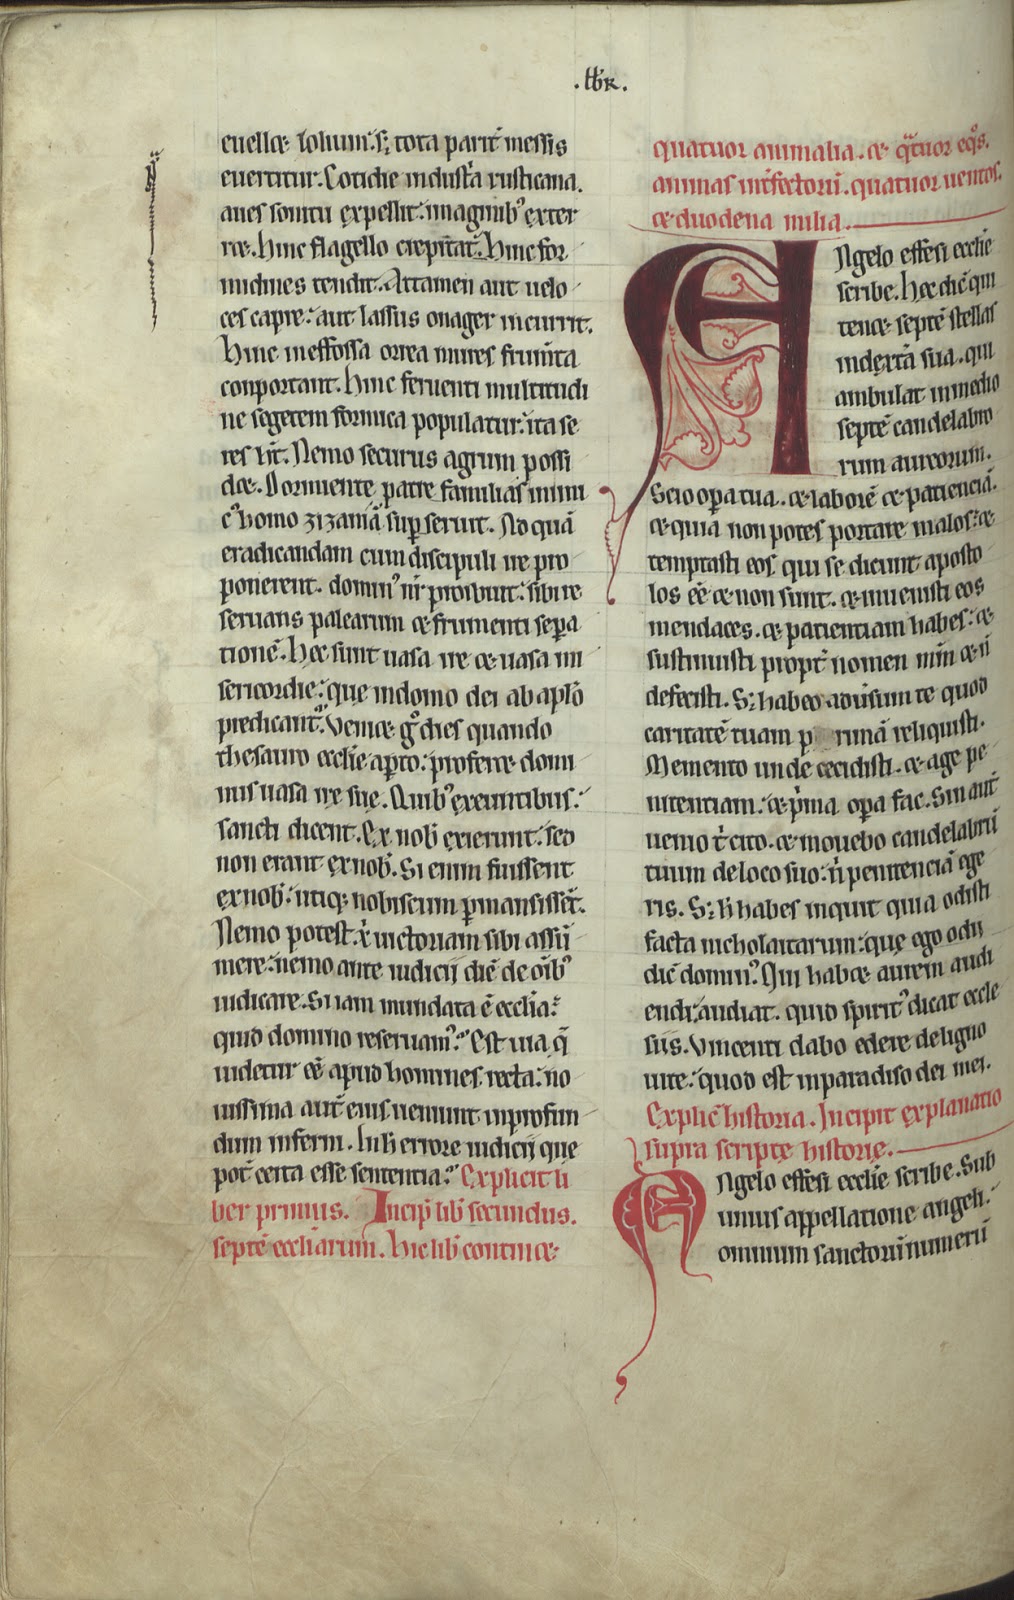 .lib͛R.
euellæ lolium. s; tota parit͛ messis
euertitur. Cotidie industͥa rusticana.
aues sonitu expellit. imaginibꝰ exter
ræ. hinc flagello crepitat. hinc for
midines tendit. Attamen aut uelo
ces capre. aut lassus onager incurrit.
hinc ineffossa orrea mures frumta
conportant. hinc feruenti multitudi
ne segetem formica populatur. ita se
res Nemo securus agrum possi
dæ. Dormiente patre familias inimi
cꝰ homo zizaniā suꝑ seruit. Ad quā
eradicandam cum discipuli ire pro
ponerent. dominꝰ nr̄ proibuit. sibi re
seruans palearum æ frumenti seꝑa
tionē. Hæ sunt uasa ire æ uasa mi
sericordie. que in domo dei ab aplō
predicant᷑. Veniæ gͦ dies quando
thesauro ecclīe aꝑto. proferæ domi
nus uasa ire sue. Quibꝰ exeuntibus.
sancti dicent. Ex nob̄ exierunt. sed
non erant ex nob̄. Si enim fuissent
ex nob̄. utiqꝫ nobiscum ꝑmansissēt.
Nemo potest xp̄i uictoriam sibi assu
mere. nemo ante iudicij diē de oīb;
iudicare. Si iam mundata ē ecclīa.
quid domino reseruamꝰ. Est uia q̄
uidetur eē apud homines recta. no
uissima aut̄ eius ueniunt in profun
dum inferni. In h̄ errore iudicij que
pot̄ certa esse sententia. Explicit li
ber primus. Incip̄ lib̄ secundus.
septē eccliarum. hic lib̄ continæ
quatuor animalia. æ qͣtuor eqͦs.
animas int͛fectorū. quatuor uentos.
æ duodena milia.
Angelo effesi ecclīe
scribe. hæc diē qui
tenæ septē stellas
in dextͣa sua. qui
ambulat in medio
septē candelabro
rum aureorum.
Scio oꝑa tua. æ laborē æ patienciā.
æ quia non potes portare malos. æ
temptasti eos qui se dicunt aposto
los eē æ non sunt. æ inuenisti eos
mendaces. æ patientiam habes. æ
sustinuisti propt͛ nomen mm̄ æ n̄
defecisti. S; habeo aduersum te quod
caritatē tuam p rimā reliquisti.
Memento unde cecidisti. æ age pe
nitentiam. æ pͥma oꝑa fac. Sin aut̄
uenio t̄ cito. æ mouebo candelabrū
tuum de loco suo. n̄ penitenciā ege
ris. S; h̄ habes inquit quia odisti
facta nicholaitarum. quę ego odij
diē dominꝰ. Qui habæ aurem audi
endi. audiat. quid spiritꝰ dicat eccle
siis. Vincenti dabo edere de ligno
uite. quod est in paradiso dei mei.
Explic̄ historia. Incipit explanatio
supra scriptę historię.
Angelo effesi ecclīe scribe. Sub
unius appellatione angeli.
omnium sanctorū numerū